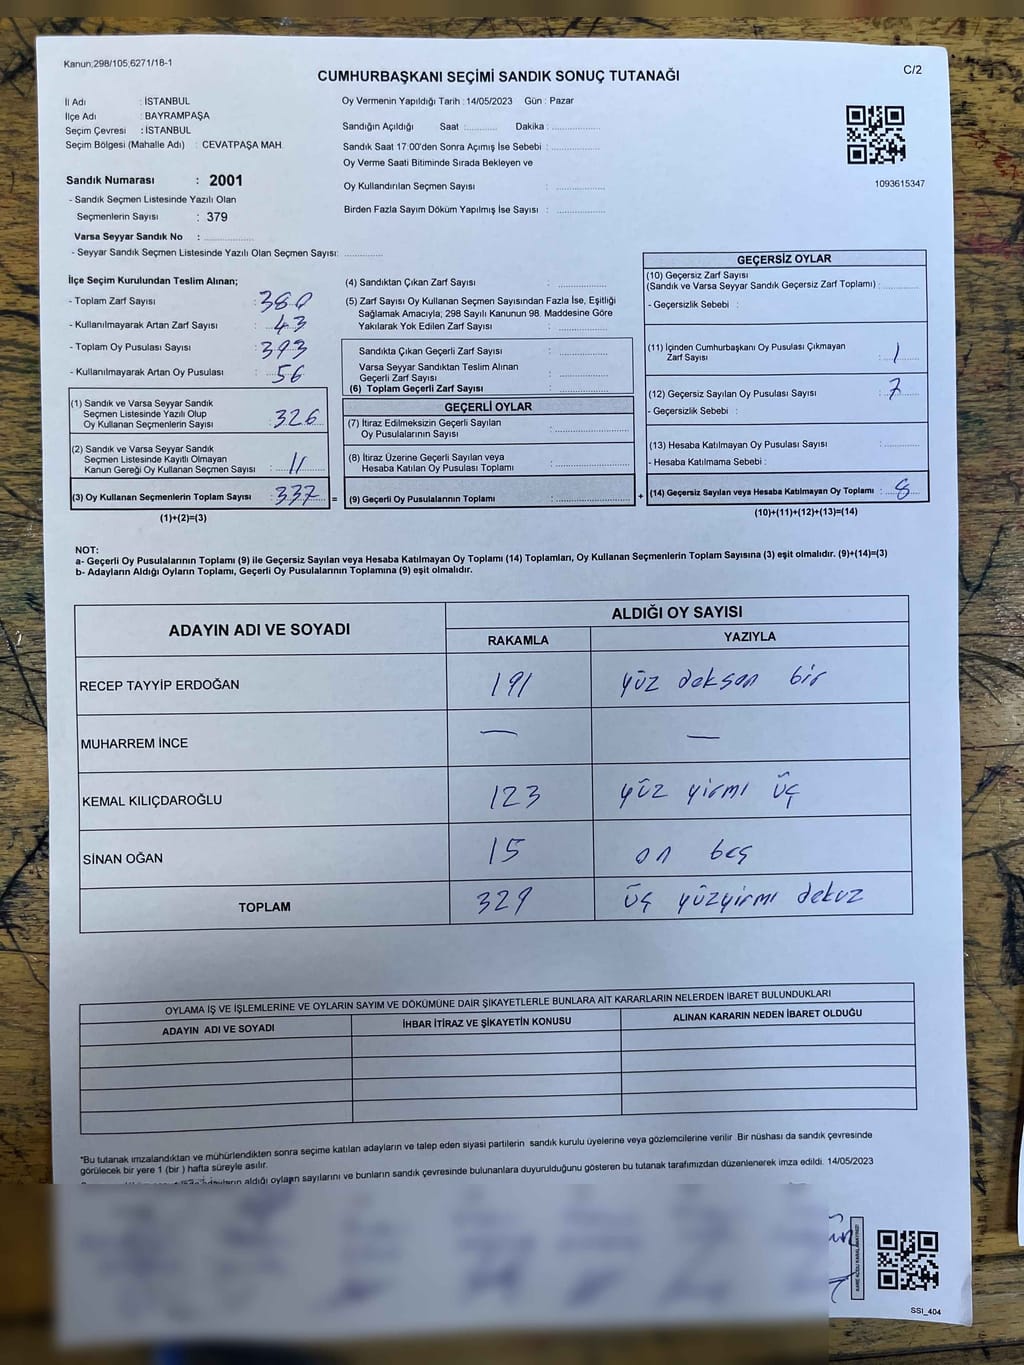 Kanun;298/105;6271/18-1
C/2
CUMHURBAŞKANI SEÇİMİ SANDIK SONUÇ TUTANAĞI
İl Adı : İSTANBUL
İlçe Adı : BAYRAMPAŞA
Seçim Çevresi : İSTANBUL
Seçim Bölgesi (Mahalle Adı) : CEVATPAŞA MAH.
Oy Vermenin Yapıldığı Tarih : 14/05/2023 Gün : Pazar
Sandığın Açıldığı Saat :........... Dakika : ...................
Sandık Saat 17:00'den Sonra Açımış İse Sebebi : ...................
Oy Verme Saati Bitiminde Sırada Bekleyen ve
Oy Kullandırılan Seçmen Sayısı : ...................
Birden Fazla Sayım Döküm Yapılmış İse Sayısı : ...................
1093615347
Sandık Numarası : 2001
- Sandık Seçmen Listesinde Yazılı Olan
Seçmenlerin Sayısı : 379
Varsa Seyyar Sandık No : ...................
- Seyyar Sandık Seçmen Listesinde Yazılı Olan Seçmen Sayısı: ...............
İlçe Seçim Kurulundan Teslim Alınan;
- Toplam Zarf Sayısı : 380
- Kullanılmayarak Artan Zarf Sayısı : 43
- Toplam Oy Pusulası Sayısı : 393
- Kullanılmayarak Artan Oy Pusulası : 56
(1) Sandık ve Varsa Seyyar Sandık
Seçmen Listesinde Yazılı Olup
Oy Kullanan Seçmenlerin Sayısı : 326
(2) Sandık ve Varsa Seyyar Sandık
Seçmen Listesinde Kayıtlı Olmayan
Kanun Gereği Oy Kullanan Seçmen Sayısı : 11
(3) Oy Kullanan Seçmenlerin Toplam Sayısı : 337 =
(1)+(2)=(3)
(4) Sandıktan Çıkan Zarf Sayısı : ...................
(5) Zarf Sayısı Oy Kullanan Seçmen Sayısından Fazla İse, Eşitliği
Sağlamak Amacıyla; 298 Sayılı Kanunun 98. Maddesine Göre
Yakılarak Yok Edilen Zarf Sayısı : ...................
Sandıkta Çıkan Geçerli Zarf Sayısı : ...................
Varsa Seyyar Sandıktan Teslim Alınan
Geçerli Zarf Sayısı : ...................
(6) Toplam Geçerli Zarf Sayısı : ...................
GEÇERLİ OYLAR
(7) İtiraz Edilmeksizin Geçerli Sayılan
Oy Pusulalarının Sayısı : ...................
(8) İtiraz Üzerine Geçerli Sayılan veya
Hesaba Katılan Oy Pusulası Toplamı : ...................
(9) Geçerli Oy Pusulalarının Toplamı : ................... +
GEÇERSİZ OYLAR
(10) Geçersiz Zarf Sayısı
(Sandık ve Varsa Seyyar Sandık Geçersiz Zarf Toplamı) : ...........
- Geçersizlik Sebebi :
(11) İçinden Cumhurbaşkanı Oy Pusulası Çıkmayan
Zarf Sayısı : 1
(12) Geçersiz Sayılan Oy Pusulası Sayısı : 7
- Geçersizlik Sebebi :
(13) Hesaba Katılmayan Oy Pusulası Sayısı : ...........
- Hesaba Katılmama Sebebi :
(14) Geçersiz Sayılan veya Hesaba Katılmayan Oy Toplamı : 8
(10)+(11)+(12)+(13)=(14)
NOT:
a- Geçerli Oy Pusulalarının Toplamı (9) ile Geçersiz Sayılan veya Hesaba Katılmayan Oy Toplamı (14) Toplamları, Oy Kullanan Seçmenlerin Toplam Sayısına (3) eşit olmalıdır. (9)+(14)=(3)
b- Adayların Aldığı Oyların Toplamı, Geçerli Oy Pusulalarının Toplamına (9) eşit olmalıdır.
ADAYIN ADI VE SOYADI
ALDIĞI OY SAYISI
RAKAMLA YAZIYLA
RECEP TAYYİP ERDOĞAN 191 yüz doksan bir
MUHARREM İNCE — —
KEMAL KILIÇDAROĞLU 123 yüz yirmi üç
SİNAN OĞAN 15 on beş
TOPLAM 329 üç yüzyirmi dokuz
OYLAMA İŞ VE İŞLEMLERİNE VE OYLARIN SAYIM VE DÖKÜMÜNE DAİR ŞİKAYETLERLE BUNLARA AİT KARARLARIN NELERDEN İBARET BULUNDUKLARI
ADAYIN ADI VE SOYADI İHBAR İTİRAZ VE ŞİKAYETİN KONUSU ALINAN KARARIN NEDEN İBARET OLDUĞU
*Bu tutanak imzalandıktan ve mühürlendikten sonra seçime katılan adayların ve talep eden siyasi partilerin sandık kurulu üyelerine veya gözlemcilerine verilir .Bir nüshası da sandık çevresinde
görülecek bir yere 1 (bir ) hafta süreyle asılır.
aldığı oyların sayılarını ve bunların sandık çevresinde bulunanlara duyurulduğunu gösteren bu tutanak tarafımızdan düzenlenerek imza edildi. 14/05/2023
SSI_404